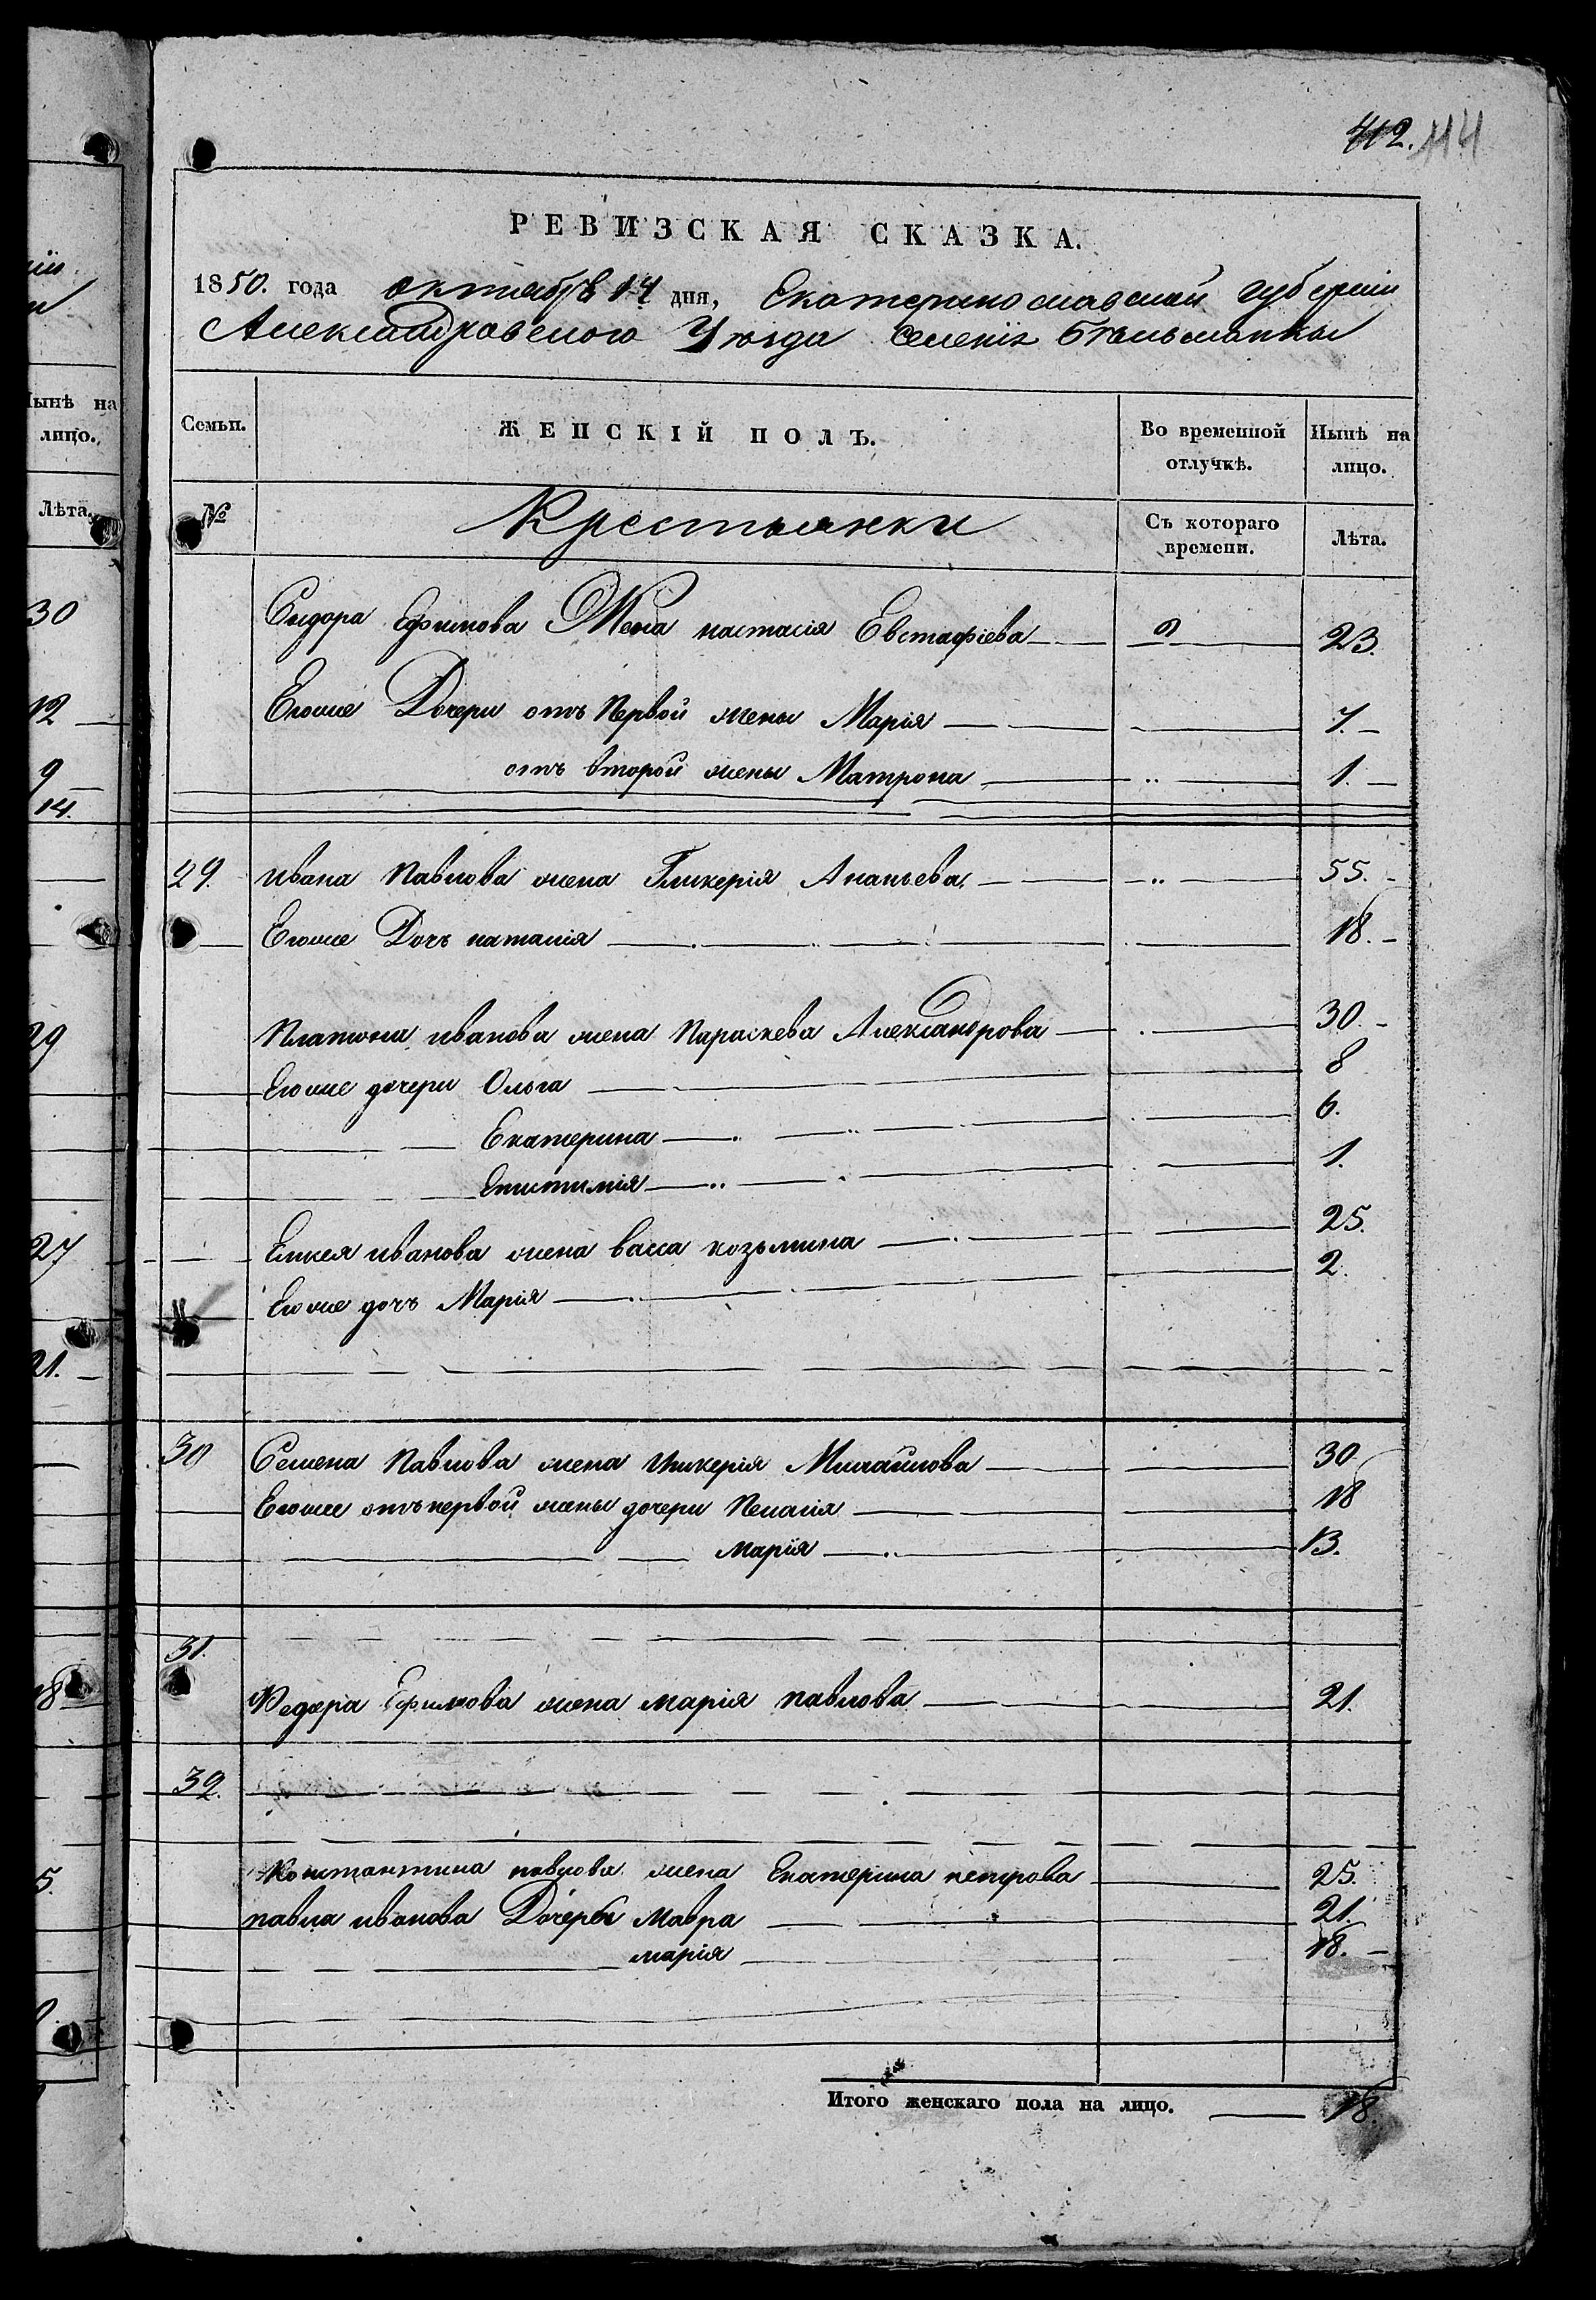 412. 114
РЕВИЗСКАЯ СКАЗКА.
1850. года октября 14 дня, Екатеринославской губерніи
Александровского Уѣзда Селенія Бѣльманки
Семьи. ЖЕНСКІЙ ПОЛЪ. Во временной отлучкѣ. Нынѣ на лицо.
№ Крестьянки Съ котораго времени. Лѣта.
Сидора Ефимова Жена настасія Евстафіева 23.
Егоже Дочери отъ Первой жены Марія 7.
отъ второй жены Матрона 1.
29. ивана Павлова жена Гликерія Ананьева 55.
Егоже Дочь наталія 18.
Платона иванова жена Параскева Александрова 30.
Егоже дочери Ольга 8
Екатерина 6.
Епистимія 1.
иванова жена васса козьмина 25.
Егоже дочь Марія 2.
30 Семена Павлова жена Михайлова 30
Егоже отъ первой жены дочери Пелагія 18
Марія 13.
31.
Федора Ефимова жена марія павлова 21.
32.
Константина павлова жена Екатерина петрова 25.
павла иванова Дочери Мавра 21.
марія 18.
Итого женскаго пола на лицо. 18
Нынѣ на
лицо.
Лѣта.
30
12
9
14.
29
27
21.